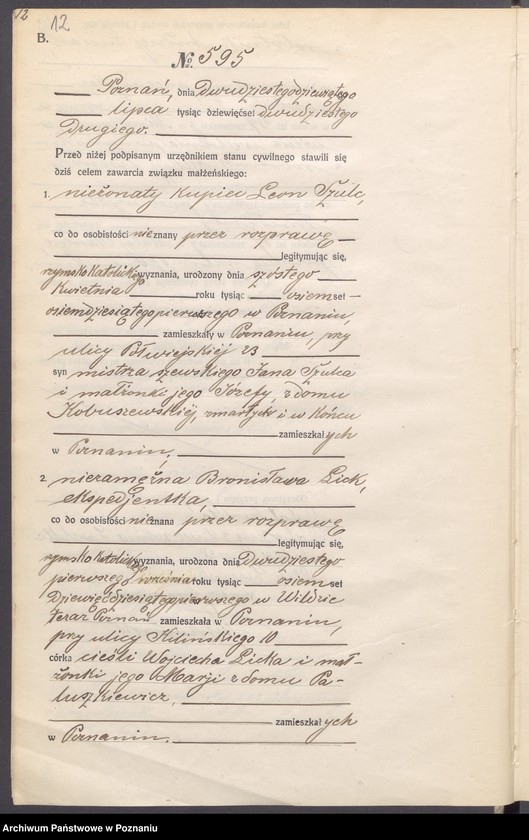 12
12
B.
№ 595
Poznań, dnia Dwudziestegodziewiątego
lipca tysiąc dziewięćset dwudziestego
Drugiego.
Przed niżej podpisanym urzędnikiem stanu cywilnego stawili się
dziś celem zawarcia związku małżeńskiego:
1. nieżonaty Kupiec Leon Szulc,
co do osobistości nieznany przez rozprawę
legitymując się,
rzymsko katolickiego wyznania, urodzony dnia szóstego
Kwietnia roku tysiąc osiemset
osiemdziesiątegopierwszego w Poznaniu,
zamieszkały w Poznaniu, przy
ulicy Półwiejskiej 23
syn mistrza szewskiego Jana Szulca
i małżonki jego Józefy, z domu
Kobuszewskiej, zmarłych i w końcu
zamieszkałych
w Poznaniu,
2. niezamężna Bronisława Lick,
ekspedjentka,
co do osobistości nieznana przez rozprawę
legitymując się,
rzymsko katolickiego wyznania, urodzona dnia Dwudziestego
pierwszego września roku tysiąc osiemset
Dziewięćdziesiątegopierwszego w Wildzie
teraz Poznań zamieszkała w Poznaniu,
przy ulicy Kilińskiego 10
córka cieśli Wojciecha Licka i mał-
żonki jego Marji z domu Pa-
luszkiewicz,
zamieszkałych
w Poznaniu.
Archiwum Państwowe w Poznaniu